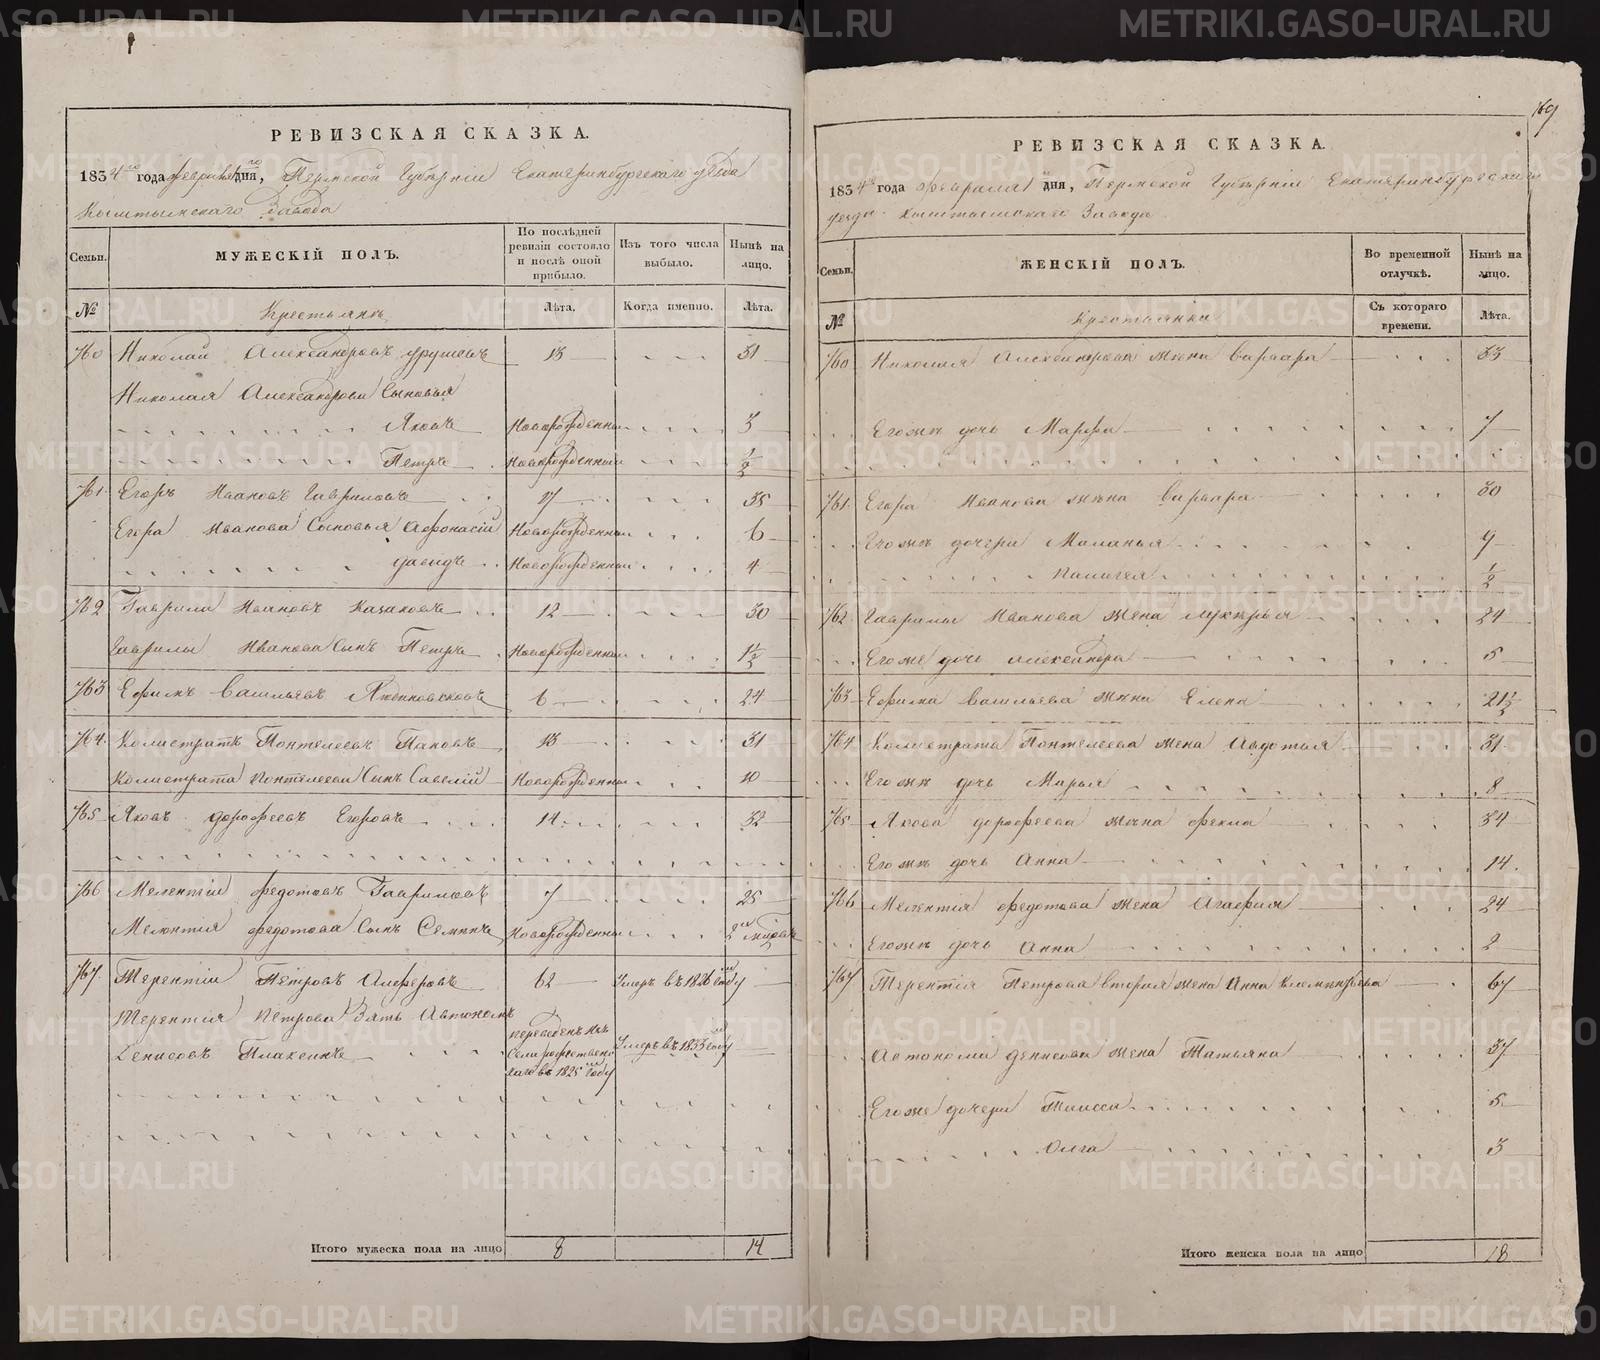 РЕВИЗСКАЯ СКАЗКА.
1834го года февраля дня, Пермской Губерніи Екатеринбургскаго уѣзда
Кыштымскаго Завода
Семьи.
МУЖЕСКІЙ ПОЛЪ.
По послѣдней ревизіи состояло и послѣ оной прибыло.
Изъ того числа выбыло.
Нынѣ на лицо.
№
Крестьянъ
Лѣта.
Когда именно.
Лѣта.
760 Николай Александровъ 13 31
Николая Александрова Сыновья
Яковъ Новорожденный 3
Петръ Новорожденный 1/2
761 Егоръ Ивановъ Гавриловъ 17 35
Егора Иванова Сыновья Афонасій Новорожденный 6
Давидъ Новорожденный 4
762 Гаврила Ивановъ Казаковъ 12 30
Гаврилы Иванова Сынъ Петръ Новорожденный 1 1/2
763 Ефимъ Васильевъ 6 24
764 Колистратъ Понтелеевъ Пановъ 13 31
Колистрата Понтелеева Сынъ Савелій Новорожденный 10
765 Яковъ Дорофеевъ Егоровъ 14 32
766 Мелентій Федотовъ Гавриловъ 7 25
Мелентія Федотова Сынъ Семенъ Новорожденный
767 Терентій Петровъ Алферовъ 62 Умеръ въ 1826 году
Терентія Петрова Зять Автономъ
Денисовъ Плахинъ
переведенъ изъ
въ 1825 году
Умеръ въ 1833 году
Итого мужеска пола на лицо 8 14
769
РЕВИЗСКАЯ СКАЗКА.
1834го года Февраля дня, Пермской Губерніи Екатеринбургскаго
уезда Кыштымскаго Завода
Семьи.
ЖЕНСКІЙ ПОЛЪ.
Во временной отлучкѣ.
Нынѣ на лицо.
№
Крестьянки
Съ котораго времени.
Лѣта.
760 Николая Александрова жена Варвара 33
Егожъ дочь Марфа 7
761 Егора Иванова жена Варвара 30
Егожъ дочери Маланья 9
Палагея 1/2
762 Гаврилы Иванова жена Лукерья 24
Егоже дочь Александра 5
763 Ефима Васильева жена Елена 21 1/2
764 Колистрата Понтелеева жена Авдотья 31
Егожъ дочь Марья 8
765 Якова Дорофеева жена Фекла 34
Егожъ дочь Анна 14
766 Мелентія Федотова жена Агафья 24
Егожъ дочь Анна 2
767 Терентія Петрова вторая жена Анна 67
Автонома Денисова жена Татьяна 37
Егоже дочери Таисса 5
Олга 3
Итого женска пола на лицо 18
METRIKI.GASO-URAL.RU